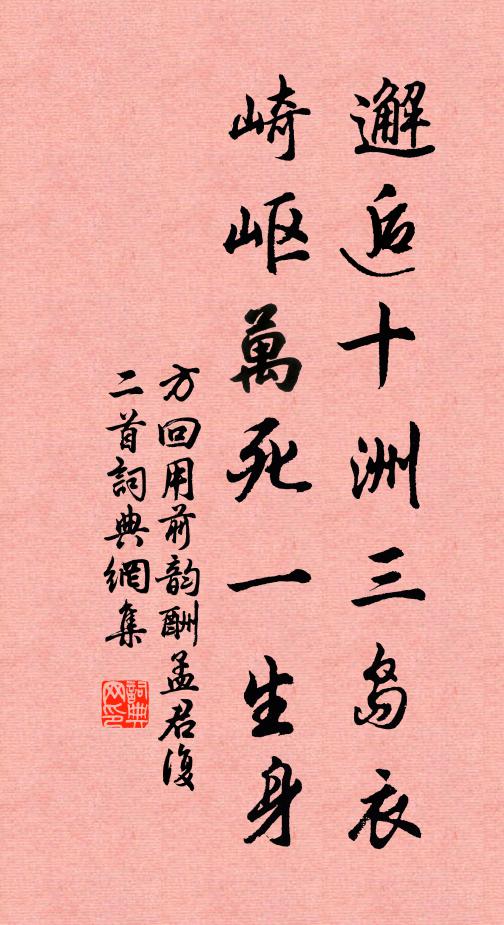 邂逅十洲三岛衣
崎岖萬死一生身
方回用前韵酬孟君復
二首詞典網集
詞典网印